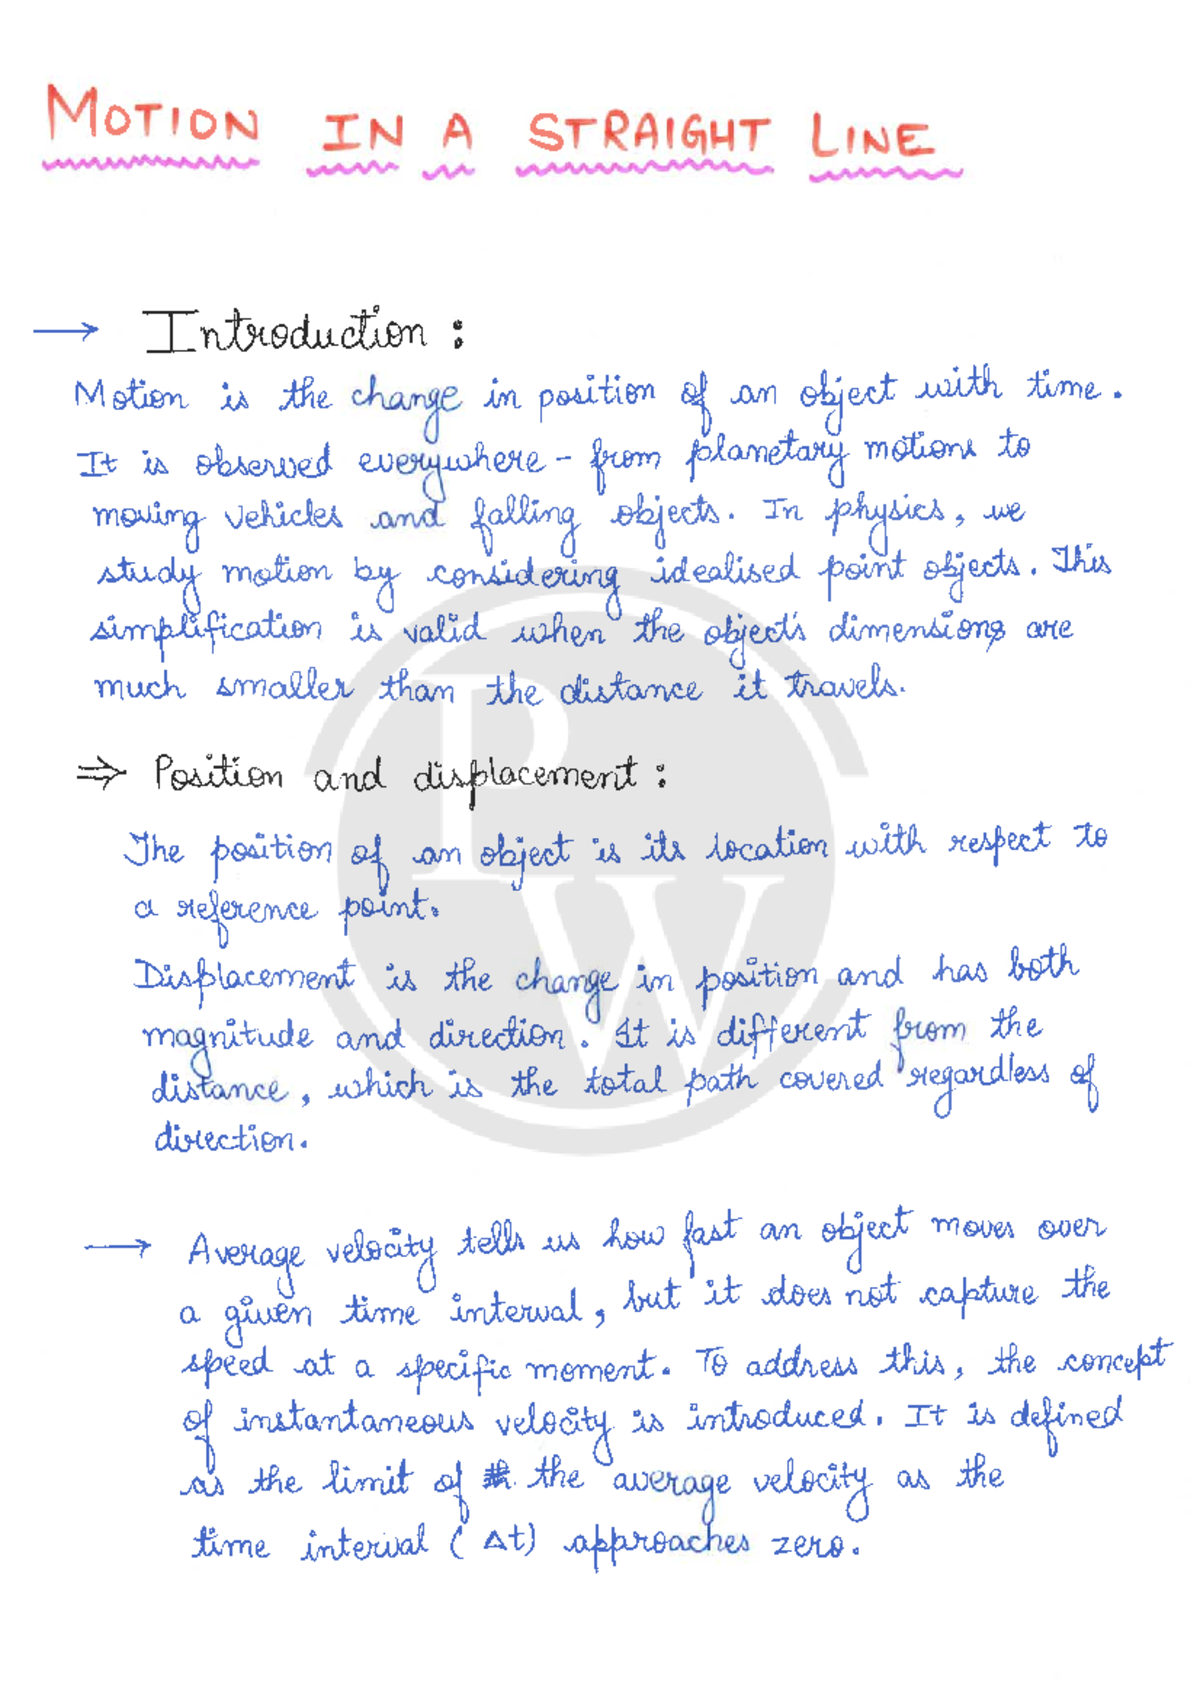 MOTION IN A STRAIGHT LINE
→ Introduction :
Motion is the change in position of an object with time.
It is observed everywhere - from planetary motions to
moving vehicles and falling objects. In physics, we
study motion by considering idealised point objects. This
simplification is valid when the object's dimensions are
much smaller than the distance it travels.
⇒ Position and displacement :
The position of an object is its location with respect to
a reference point.
Displacement is the change in position and has both
magnitude and direction. It is different from the
distance, which is the total path covered regardless of
direction.
→ Average velocity tells us how fast an object moves over
a given time interval, but it does not capture the
speed at a specific moment. To address this, the concept
of instantaneous velocity is introduced. It is defined
as the limit of the average velocity as the
time interval (Δt) approaches zero.
PW